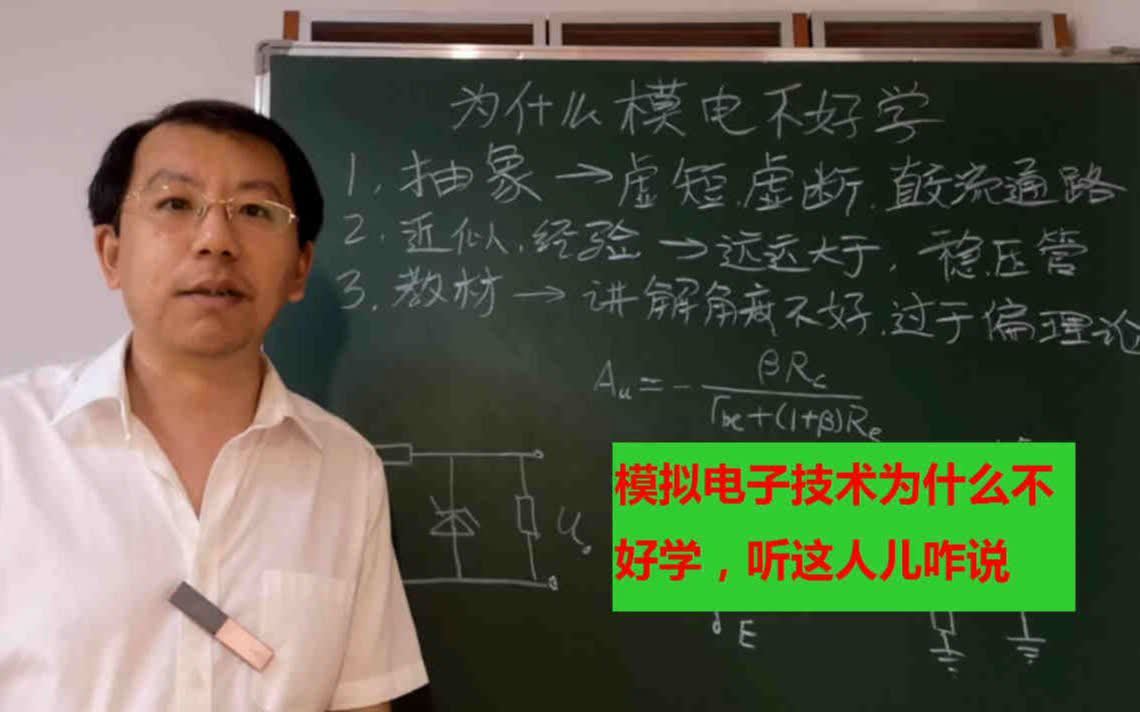 为什么模电不好学
1. 抽象 → 虚短.虚断.直流通路
2. 近似.经验 → 远远大于.稳压管
3. 教材 → 讲解角度不好.过于偏理论
Au = - βRc / rbe+(1+β)Re
模拟电子技术为什么不
好学，听这人儿咋说
Uo
E